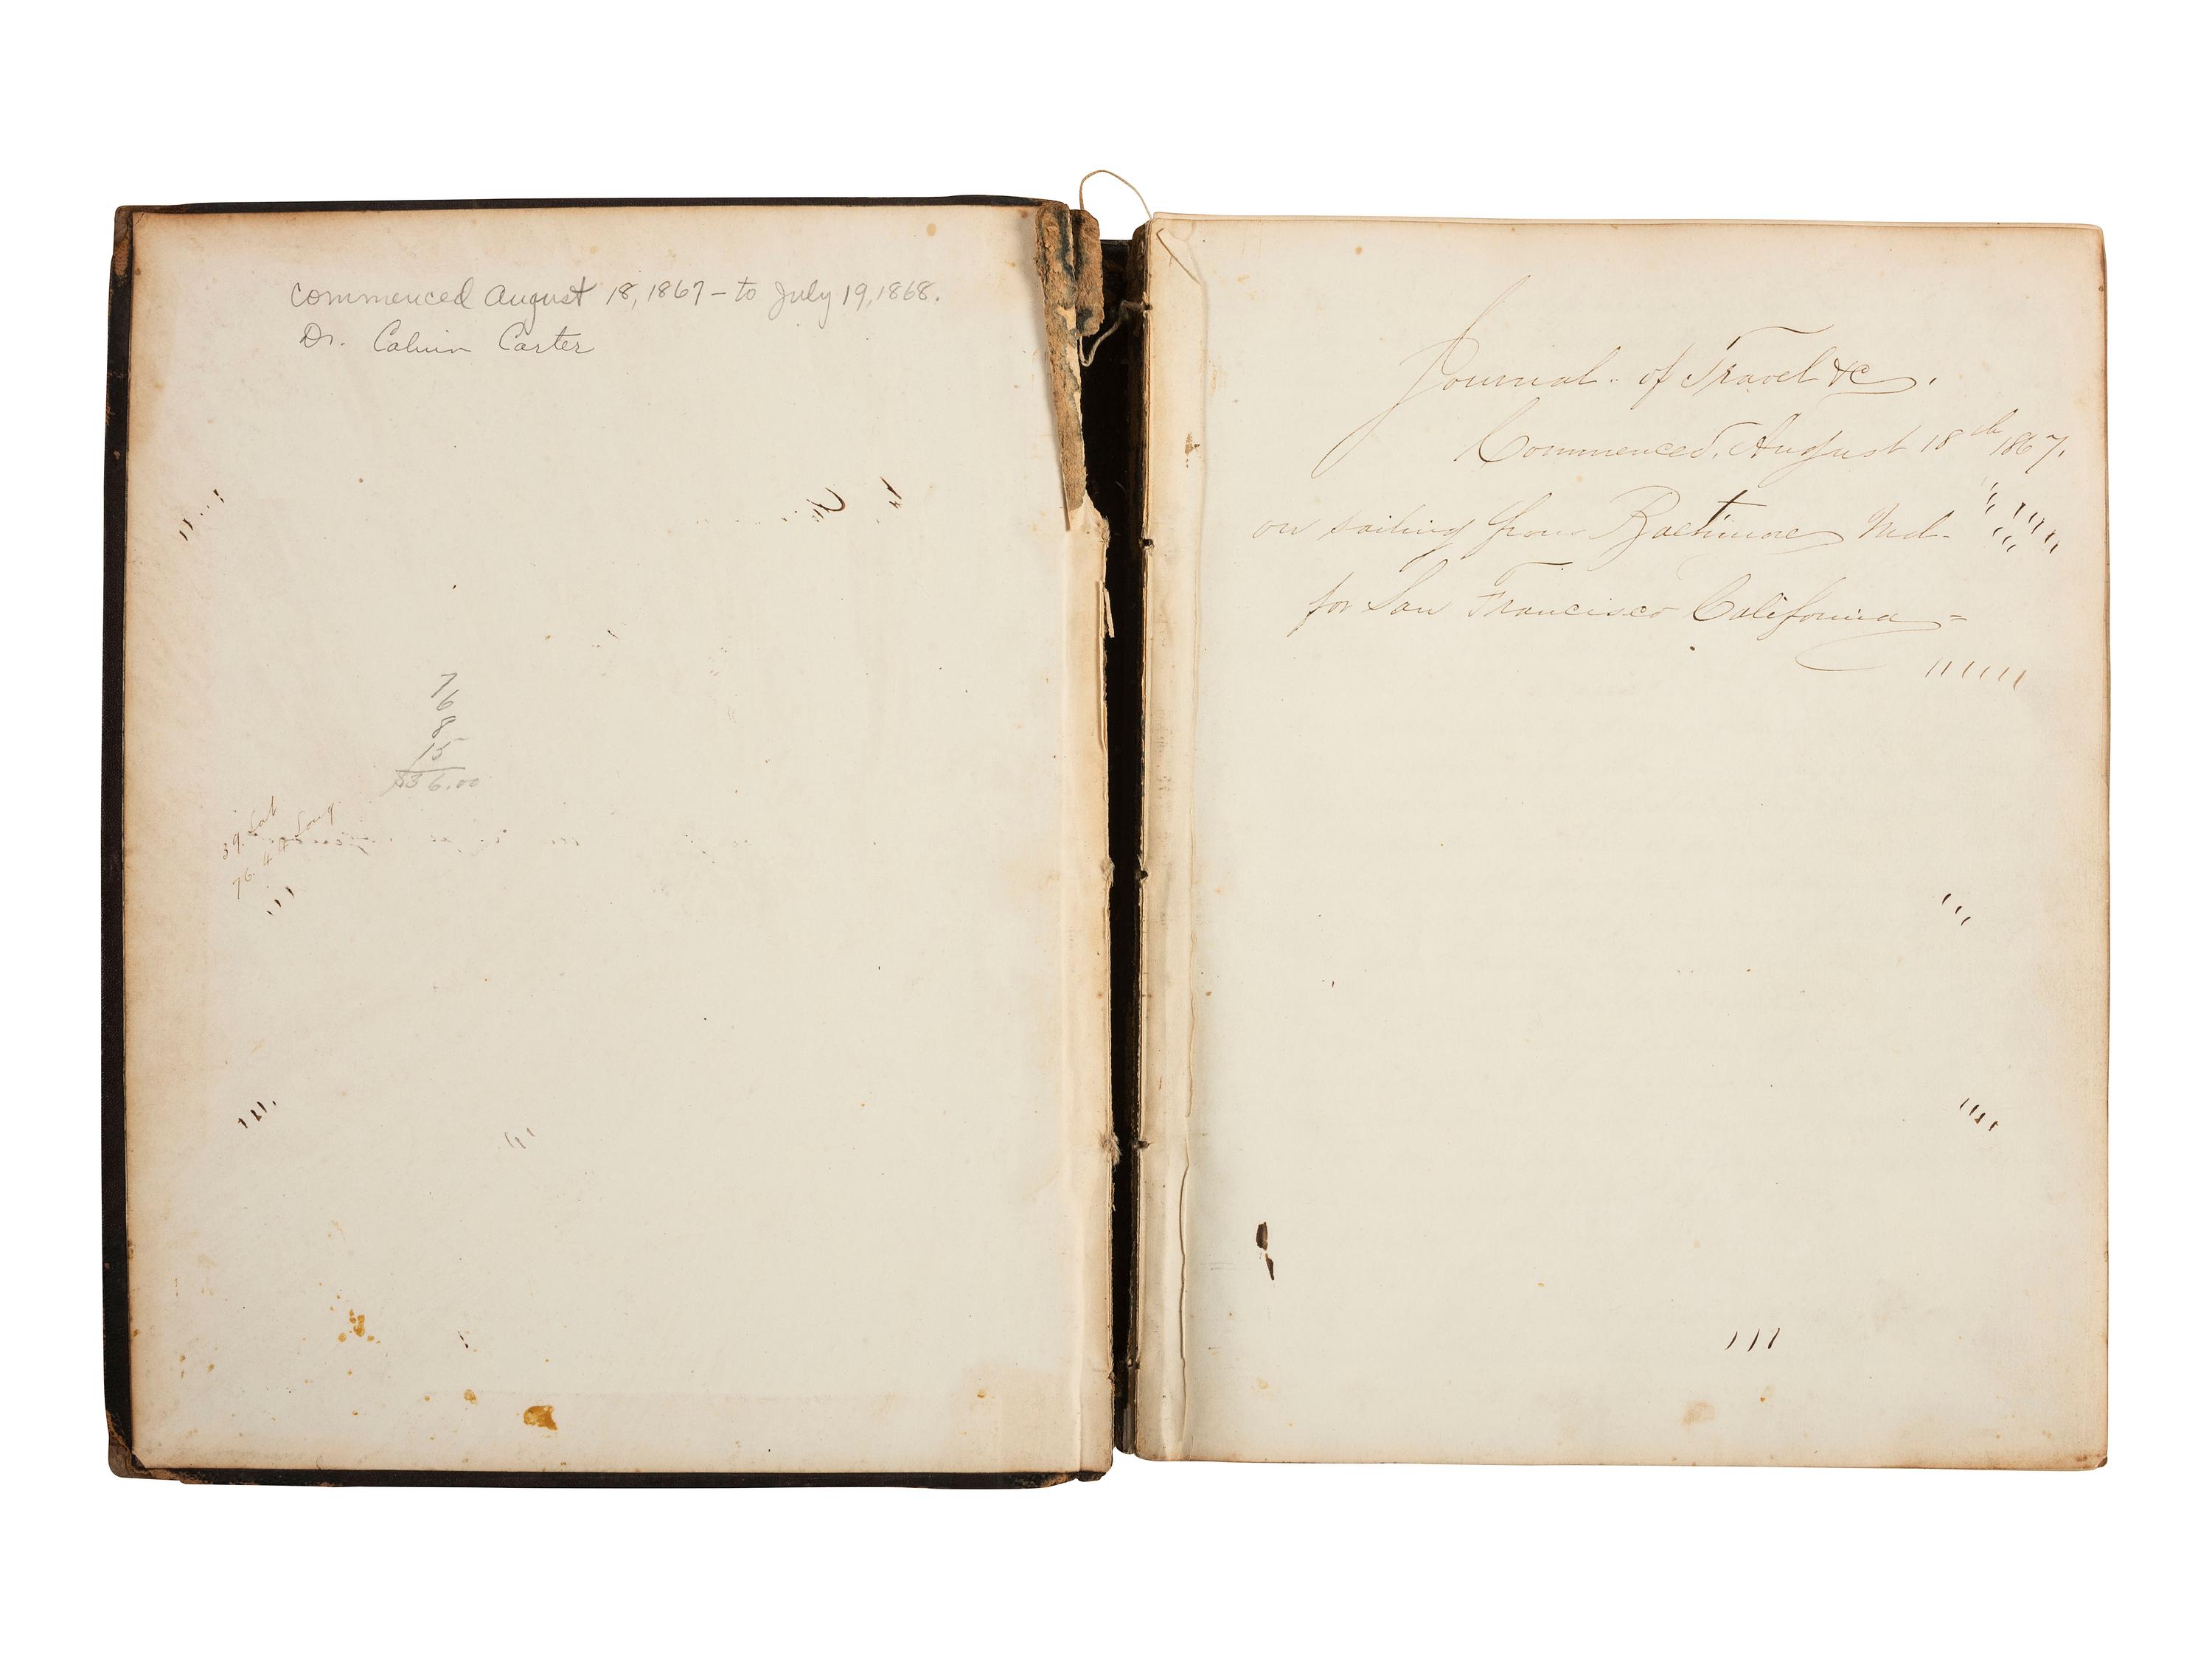 commenced August 18, 1867 – to July 19, 1868.
Dr. Calvin Carter
7
6
8
15
$36.00
39. Lat
76.44 Long
Journal. of Travel &c.
Commenced, August 18th 1867.
on sailing from Baltimore Md.
for San Francisco California =